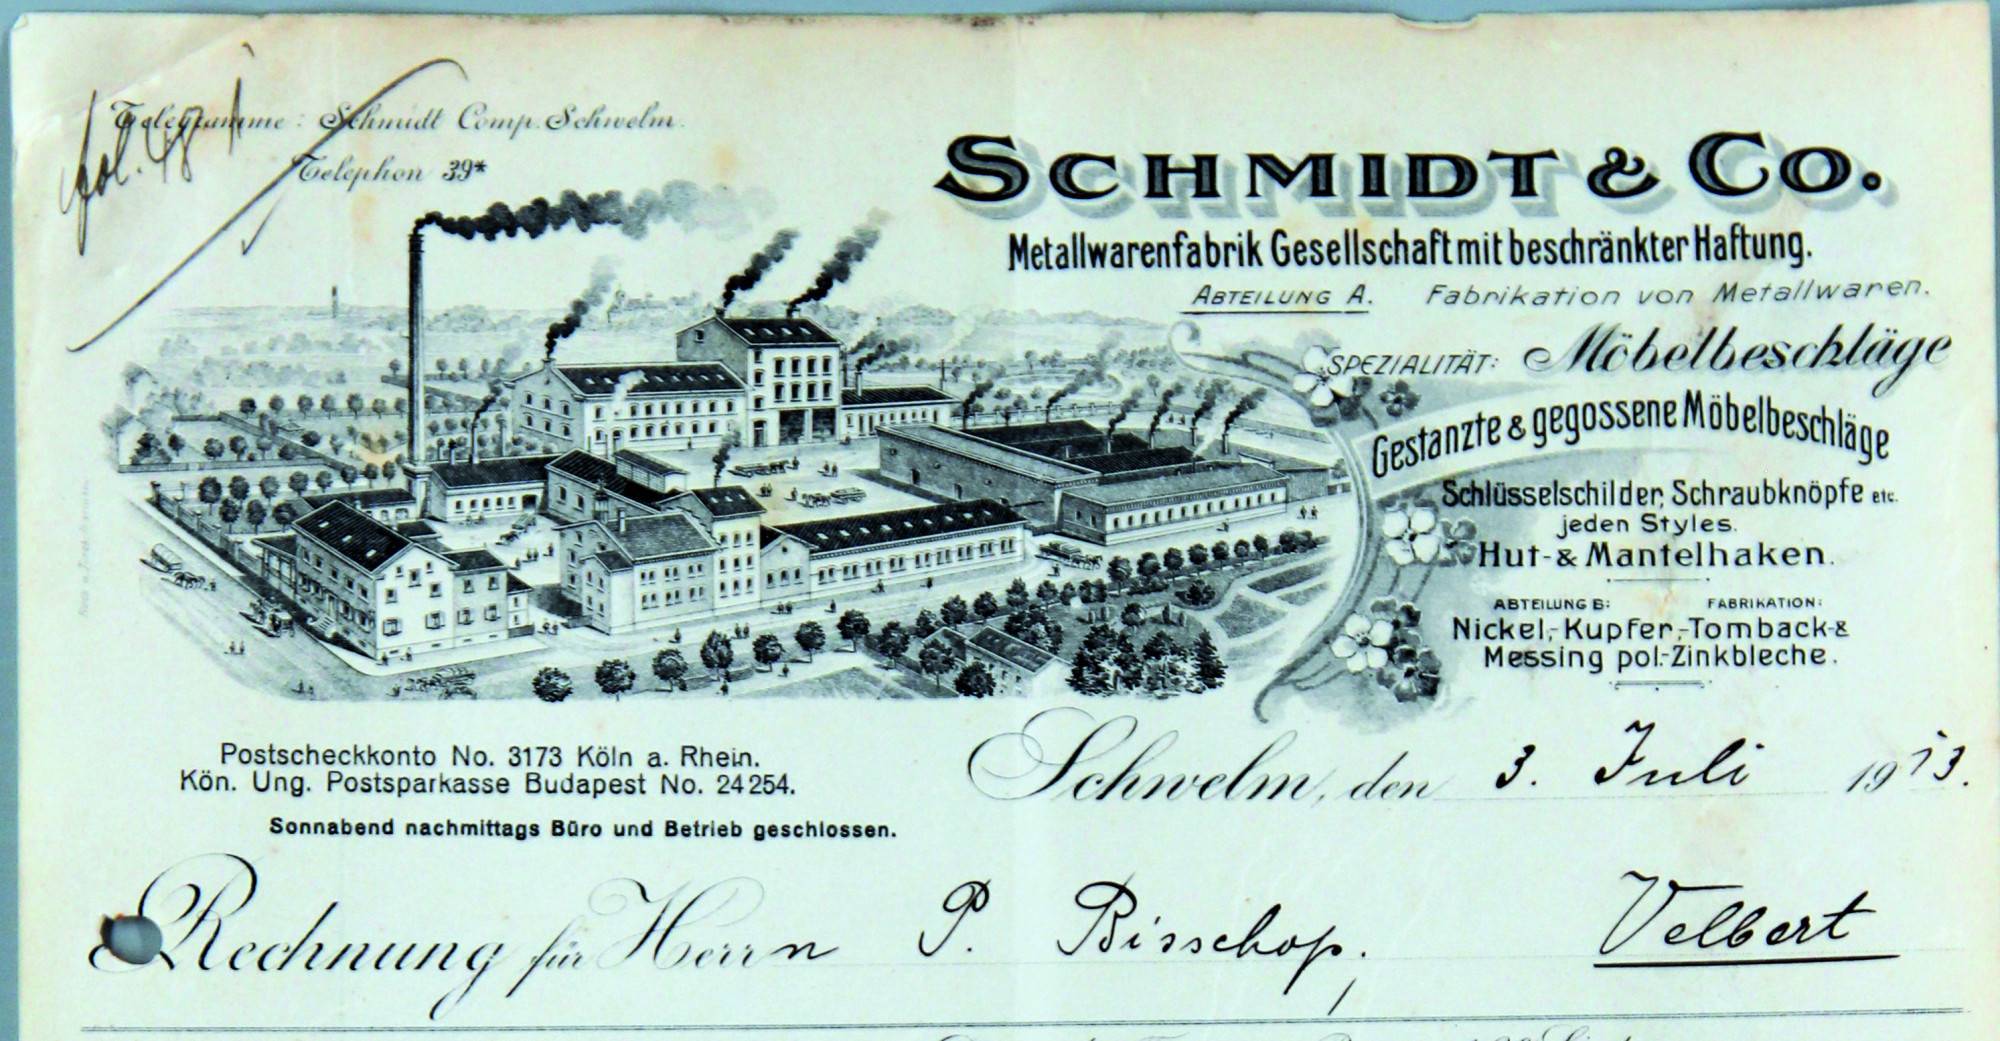 fol. 48
Telegramme: Schmidt Comp. Schwelm.
Telephon 39*
SCHMIDT & CO.
Metallwarenfabrik Gesellschaft mit beschränkter Haftung.
ABTEILUNG A. Fabrikation von Metallwaren.
SPEZIALITÄT: Möbelbeschläge
Gestanzte & gegossene Möbelbeschläge
Schlüsselschilder, Schraubknöpfe etc.
jeden Styles.
Hut- & Mantelhaken.
ABTEILUNG B: FABRIKATION:
Nickel,- Kupfer,- Tomback- &
Messing pol.-Zinkbleche.
Postscheckkonto No. 3173 Köln a. Rhein.
Kön. Ung. Postsparkasse Budapest No. 24254.
Sonnabend nachmittags Büro und Betrieb geschlossen.
Schwelm, den 3. Juli 1913.
Rechnung für Herrn P. Bisschop, Velbert